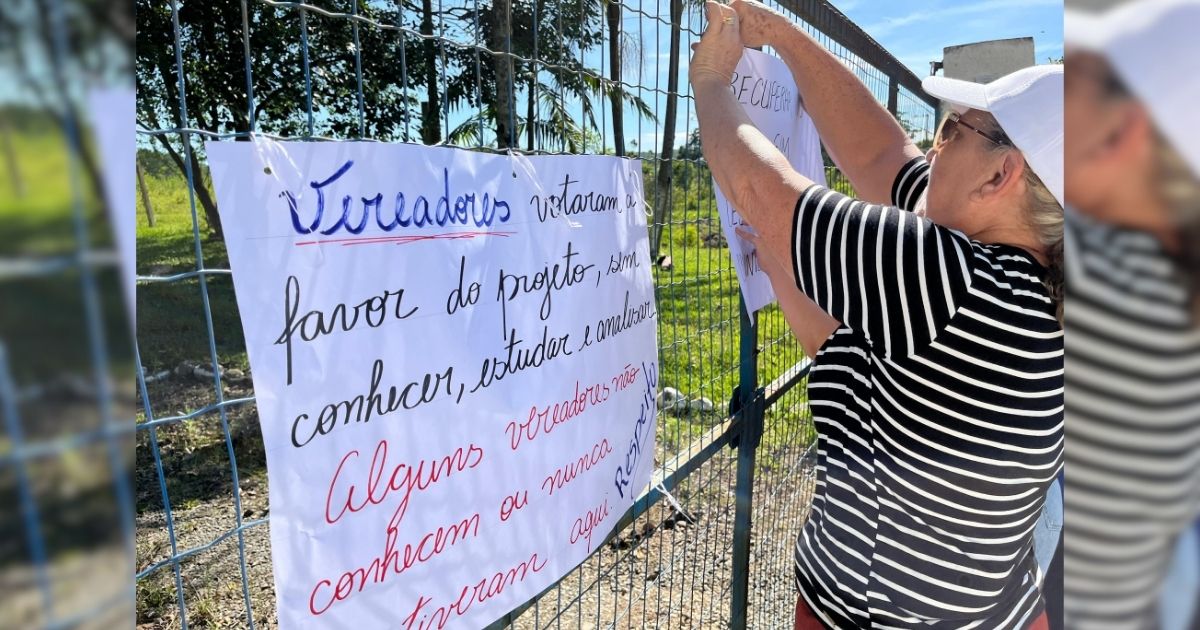 Vereadores votaram a
favor do projeto, sem
conhecer, estudar e analisar.
Alguns vereadores não
conhecem ou nunca
tiveram aqui.
Respeito